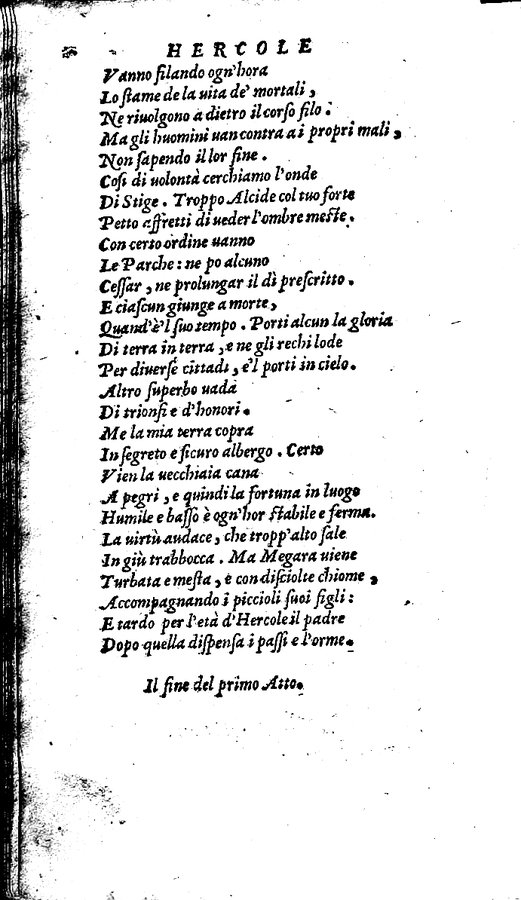 HERCOLE
Vanno filando ogn'hora
Lo ſtame de la uita de' mortali,
Ne riuolgono a dietro il corſo filo.
Ma gli huomini uan contra a i propri mali,
Non ſapendo il lor fine.
Coſi di uolontà cerchiamo l'onde
Di Stige. Troppo Alcide col tuo forte
Petto affretti di ueder l'ombre meſte.
Con certo ordine uanno
Le Parche: ne po alcuno
Ceſſar, ne prolungar il dì preſcritto.
E ciaſcun giunge a morte,
Quand'è'l ſuo tempo. Porti alcun la gloria
Di terra in terra, e ne gli rechi lode
Per diuerſe cittadi, e'l porti in cielo.
Altro ſuperbo uada
Di trionfi e d'honori.
Me la mia terra copra
In ſegreto e ſicuro albergo. Certo
Vien la uecchiaia cana
A pegri, e quindi la fortuna in luogo
Humile e baſſo è ogn'hor ſtabile e ferma.
La uirtù audace, che tropp'alto ſale
In giù trabbocca. Ma Megara uiene
Turbata e meſta, e con diſciolte chiome,
Accompagnando i piccioli ſuoi figli:
E tardo per l'età d'Hercole il padre
Dopo quella diſpenſa i paſſi e l'orme.
Il fine del primo Atto.